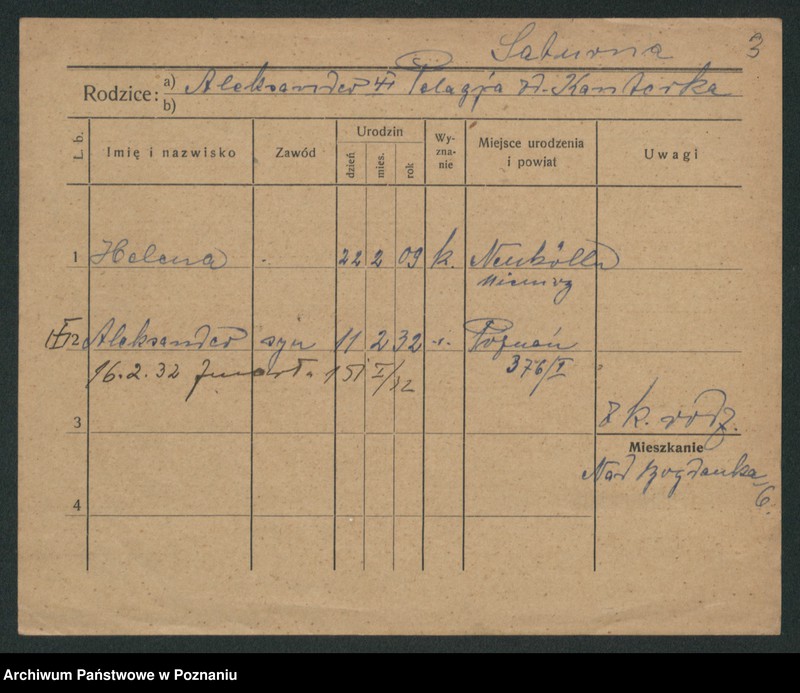 Saturna 3
Rodzice: a) Aleksander Pelagja z d. Kantorka
b)
L. b. Imię i nazwisko Zawód Urodzin dzień mies. rok Wy-zna-nie Miejsce urodzenia i powiat Uwagi
1 Helena 22 2 09 k. Neukölln
Niemcy
2 Aleksander syn 11 2 32 Poznań
16.2.32 151 I/32 376/I
z k. rodz.
3
Mieszkanie
Nad Bogdanka 6.
4
Archiwum Państwowe w Poznaniu